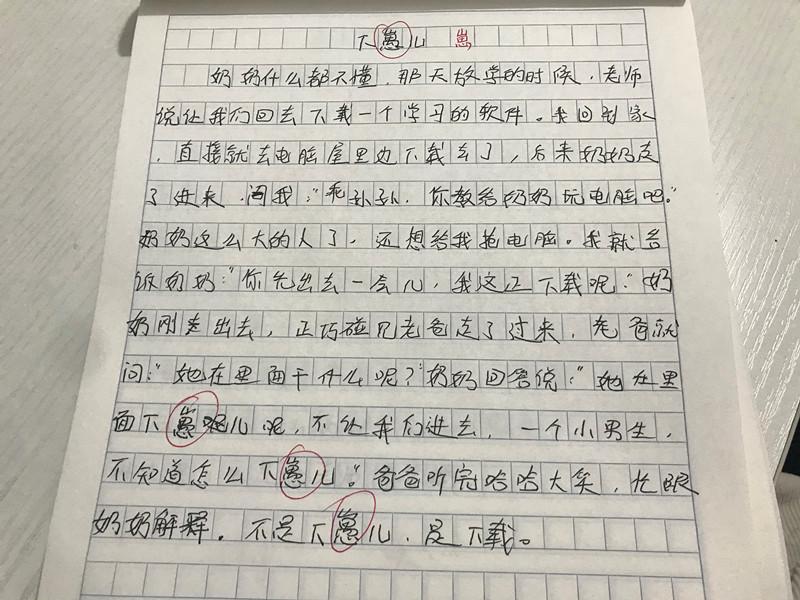 下崽儿 崽
奶奶什么都不懂,那天放学的时候,老师
说让我们回去下载一个学习的软件。我回到家
,直接就去电脑屋里边下载去了,后来奶奶走
了进来,问我:“乖孙孙,你教给奶奶玩电脑吧。”
奶奶这么大的人了,还想给我抢电脑。我就告
诉奶奶:“你先出去一会儿,我这正下载呢。”奶
奶刚走出去,正巧碰见老爸走了过来,老爸就
问:“她在里面干什么呢?”奶奶回答说:“她在里
面下崽呢儿呢,不让我们进去,一个小男生,
不知道怎么下崽儿。”爸爸听完哈哈大笑,忙跟
奶奶解释,不是下崽儿,是下载。